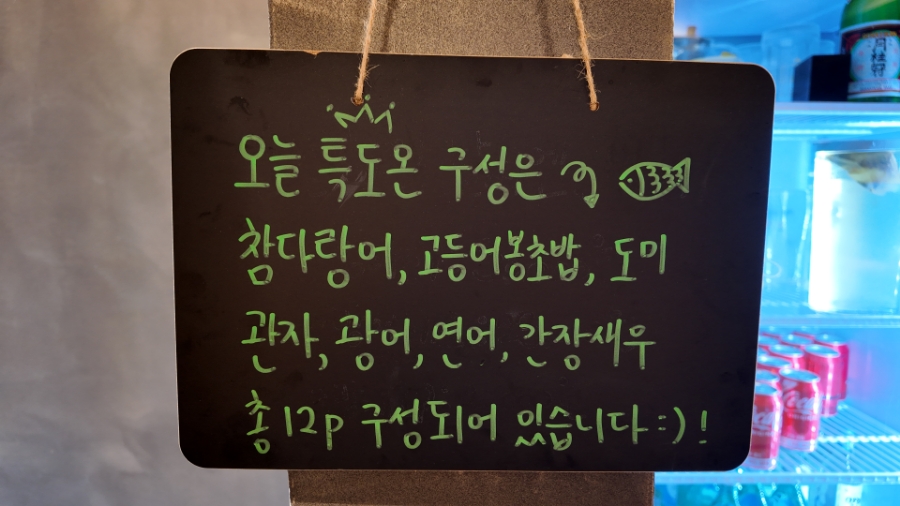 오늘 특도온 구성은
참다랑어, 고등어봉초밥, 도미
관자, 광어, 연어, 간장새우
총 12p 구성되어 있습니다 :) !
月桂冠